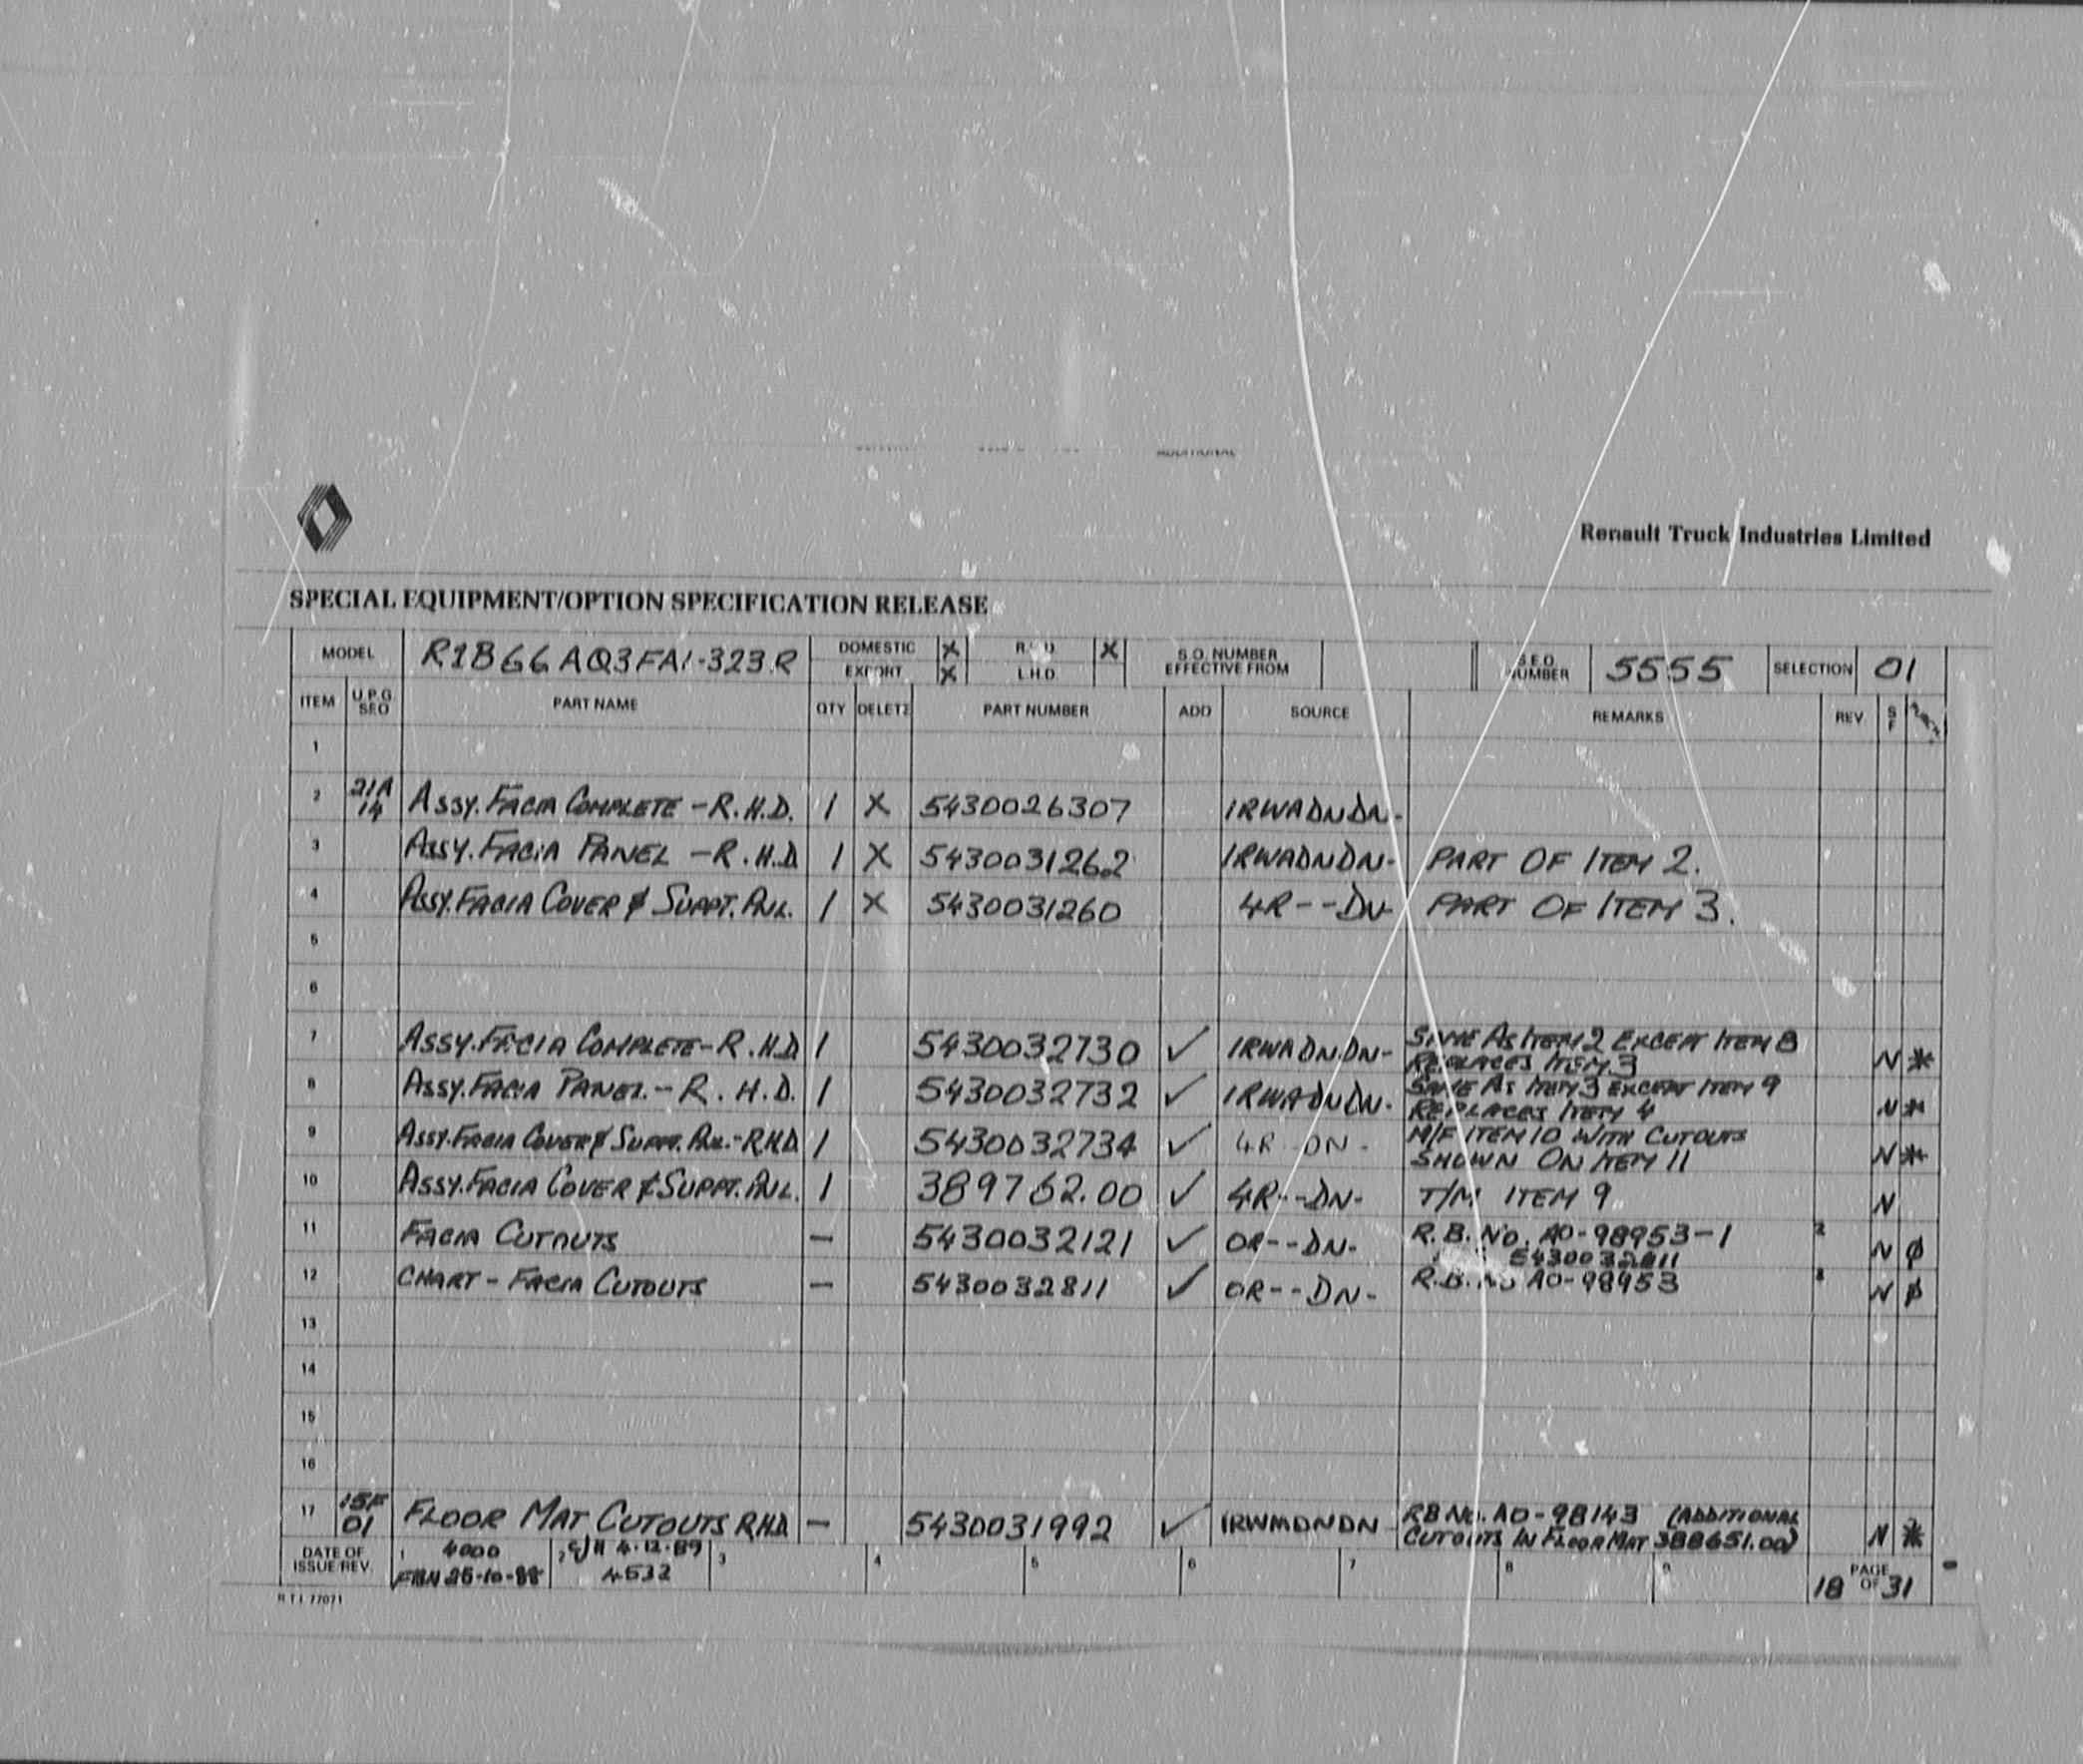 Renault Truck Industries Limited
SPECIAL EQUIPMENT/OPTION SPECIFICATION RELEASE
MODEL R1B66AQ3FA1-323.R DOMESTIC X R.H.D. X S.O. NUMBER EFFECTIVE FROM S.E.O NUMBER 5555 SELECTION 01
EXPORT X L.H.D.
ITEM U.P.G SEQ PART NAME QTY DELETE PART NUMBER ADD SOURCE REMARKS REV S F
1
2 21A 14 ASSY. FACIA COMPLETE - R.H.D. 1 X 5430026307 1RWADNDN-
3 ASSY. FACIA PANEL - R.H.D 1 X 5430031262 1RWADNDN- PART OF ITEM 2.
4 ASSY. FACIA COVER & SUPPT. PNL. 1 X 5430031260 4R--DN- PART OF ITEM 3.
5
6
7 ASSY. FACIA COMPLETE - R.H.D 1 5430032730 ✓ 1RWADNDN- SAME AS ITEM 2 EXCEPT ITEM 8
REPLACES ITEM 3 N *
8 ASSY. FACIA PANEL. - R.H.D. 1 5430032732 ✓ 1RWADNDN- SAME AS ITEM 3 EXCEPT ITEM 9
REPLACES ITEM 4 N *
9 ASSY. FACIA COVER & SUPPT. PNL. - RHD 1 5430032734 ✓ 4R--DN- M/F ITEM 10 WITH CUTOUTS
SHOWN ON ITEM 11 N *
10 ASSY. FACIA COVER & SUPPT. PNL. 1 389762.00 ✓ 4R--DN- T/M ITEM 9 N
11 FACIA CUTOUTS - 5430032121 ✓ 0R--DN- R.B. No. A0-98953-1 2 N φ
5430032811
12 CHART - FACIA CUTOUTS - 5430032811 ✓ 0R--DN- R.B. No A0-98953 N φ
13
14
15
16
17 15F 01 FLOOR MAT CUTOUTS RHD - 5430031992 ✓ 1RWMDNDN- RB No. A0-98143 (ADDITIONAL
CUTOUTS IN FLOOR MAT 388651.00) N *
DATE OF ISSUE/REV. 1 4000 2 4.12.89 3 4 5 6 7 8 9 PAGE
25-10-88 4532 18 OF 31
R.T.I. 77071